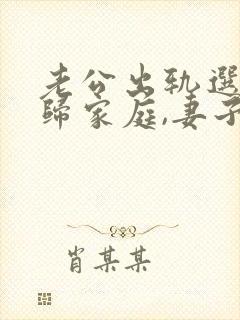 老公出轨選
歸家庭,妻子
肖某某